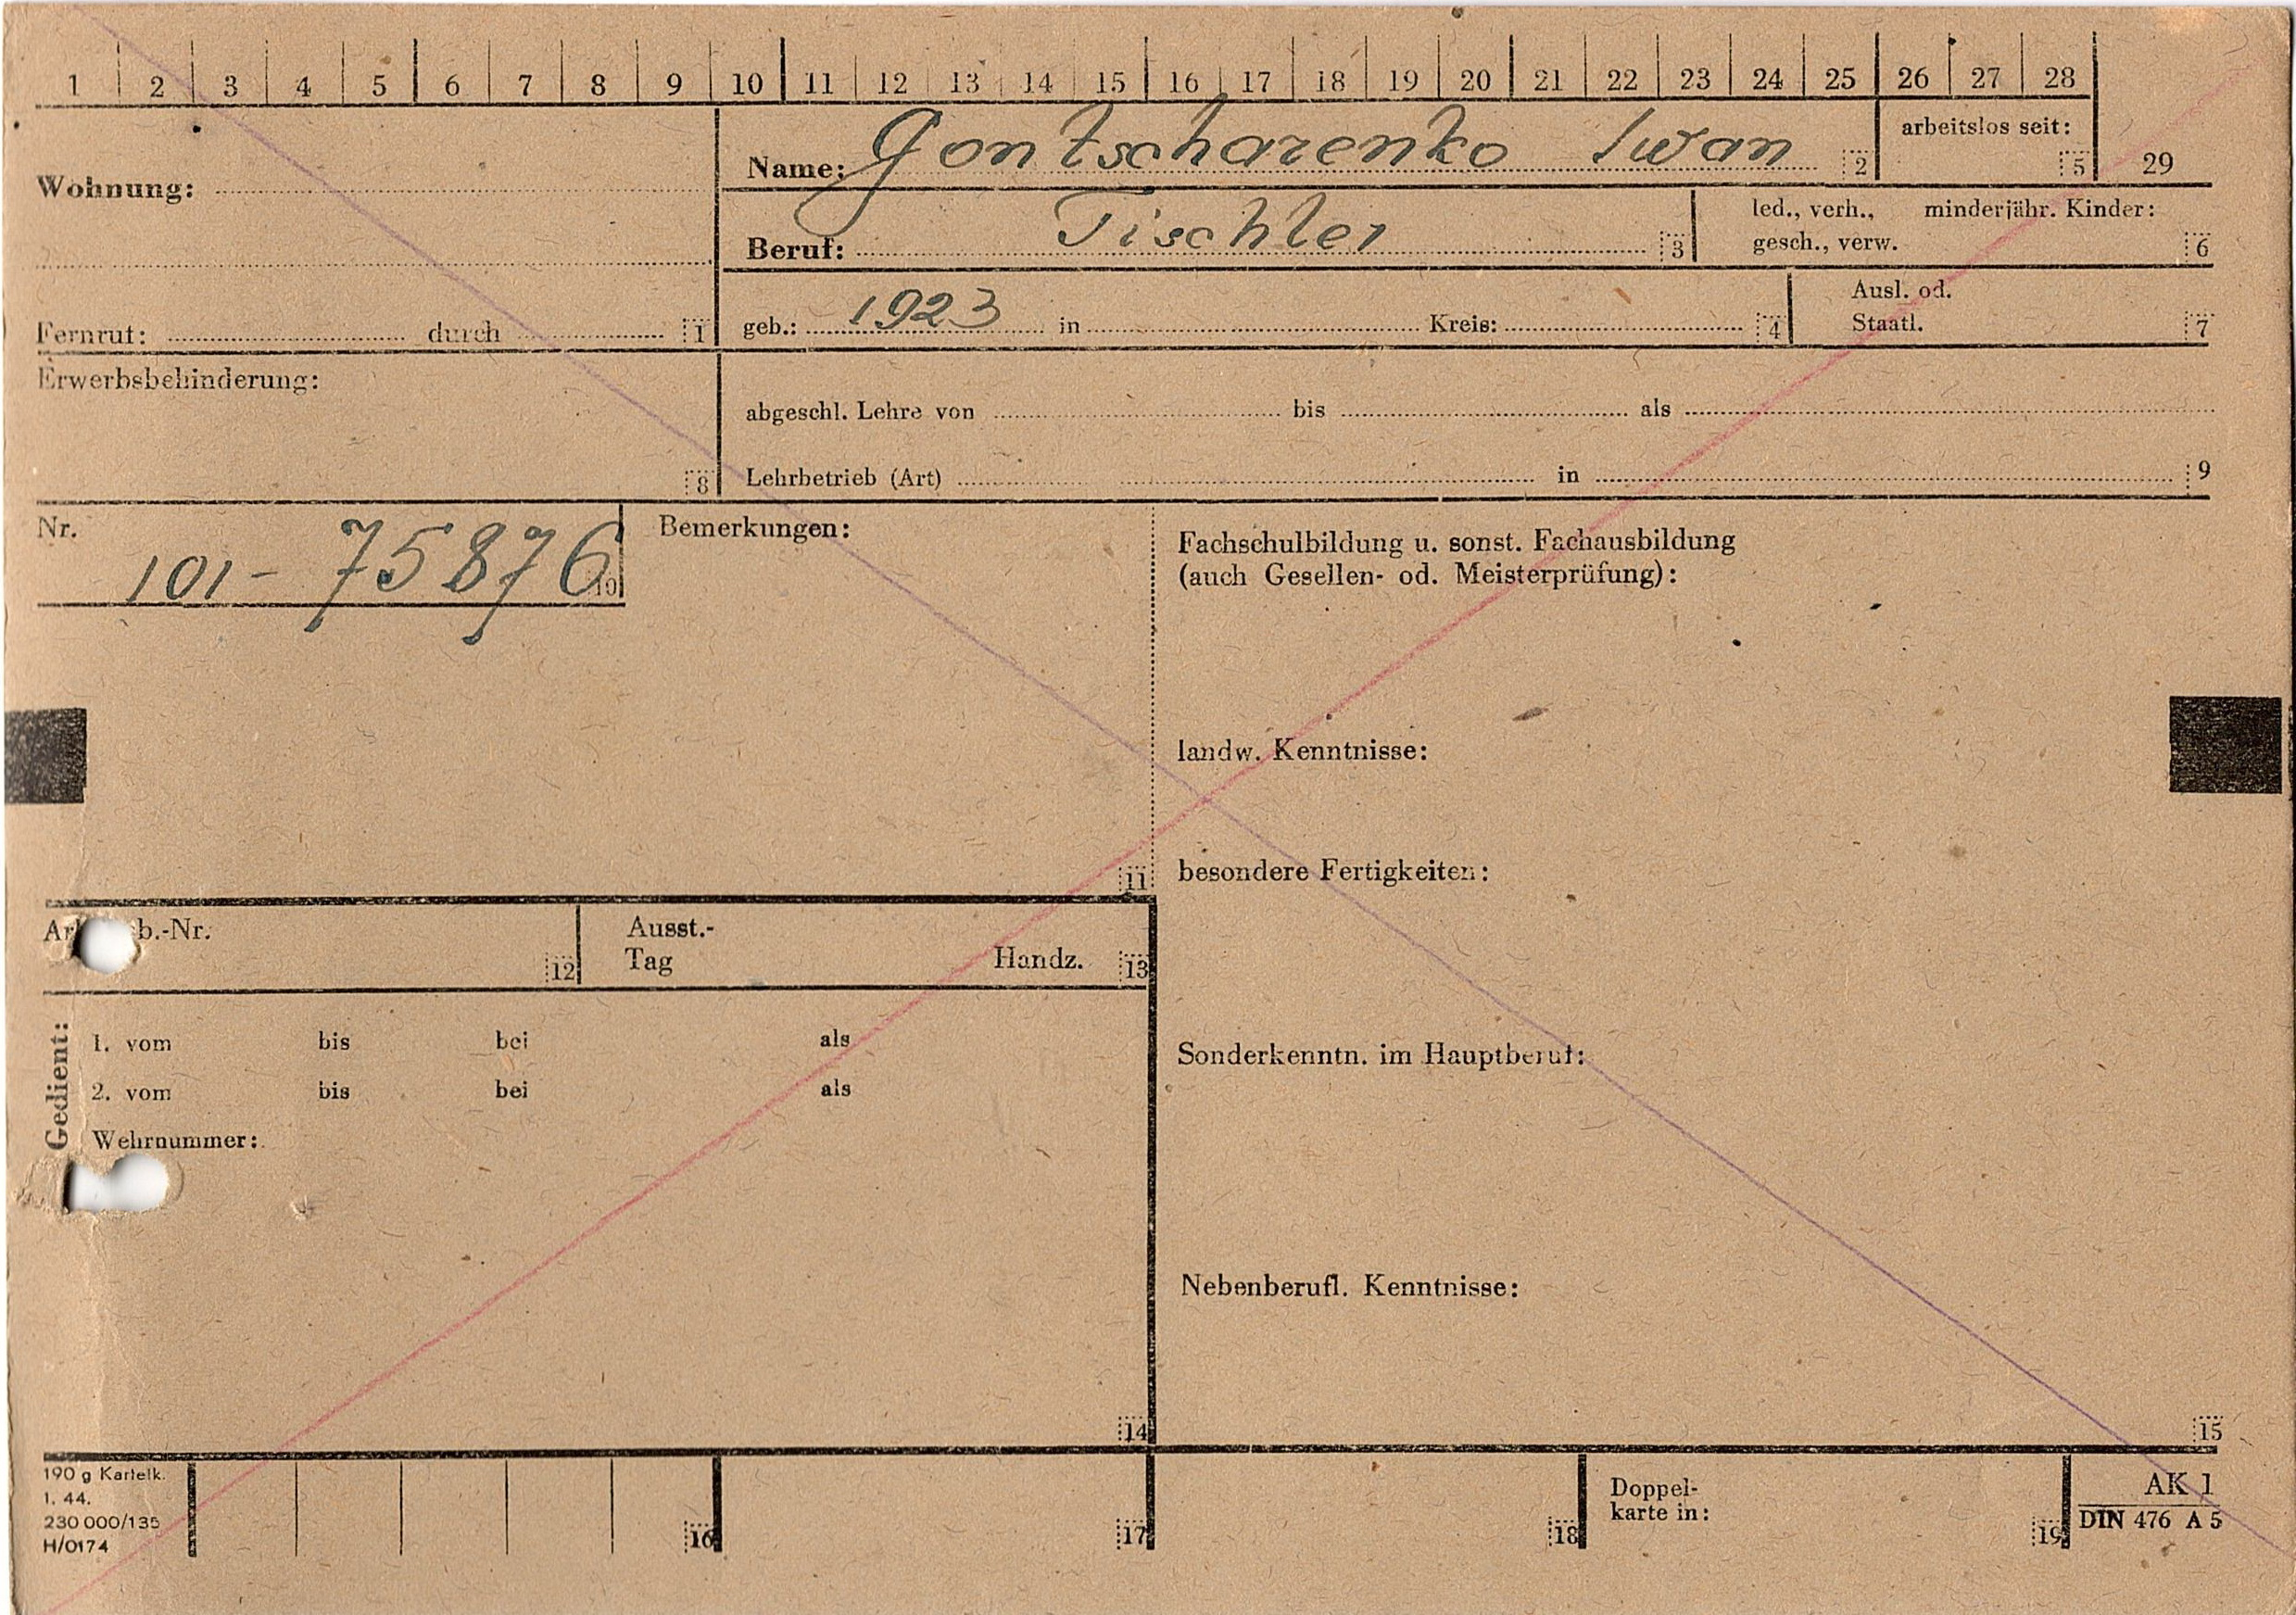 1 2 3 4 5 6 7 8 9 10 11 12 13 14 15 16 17 18 19 20 21 22 23 24 25 26 27 28
Wohnung:
Name: Gontscharenko Iwan 2
arbeitslos seit: 5
29
Beruf: Tischler 3
led., verh., minderjähr. Kinder:
gesch., verw. 6
Fernruf: durch 1
geb.: 1923 in Kreis: 4
Ausl. od.
Staatl. 7
Erwerbsbehinderung:
8
abgeschl. Lehre von bis als
Lehrbetrieb (Art) in 9
Nr.
101-75876 10
Bemerkungen:
11
Fachschulbildung u. sonst. Fachausbildung
(auch Gesellen- od. Meisterprüfung):
landw. Kenntnisse:
besondere Fertigkeiten:
b.-Nr. 12
Ausst.-
Tag Handz. 13
Gedient:
1. vom bis bei als
2. vom bis bei als
Wehrnummer:
14
Sonderkenntn. im Hauptberuf:
Nebenberufl. Kenntnisse:
15
190 g Karteik.
1. 44.
230 000/135
H/0174
16
17
18
Doppel-
karte in: 19
AK 1
DIN 476 A 5